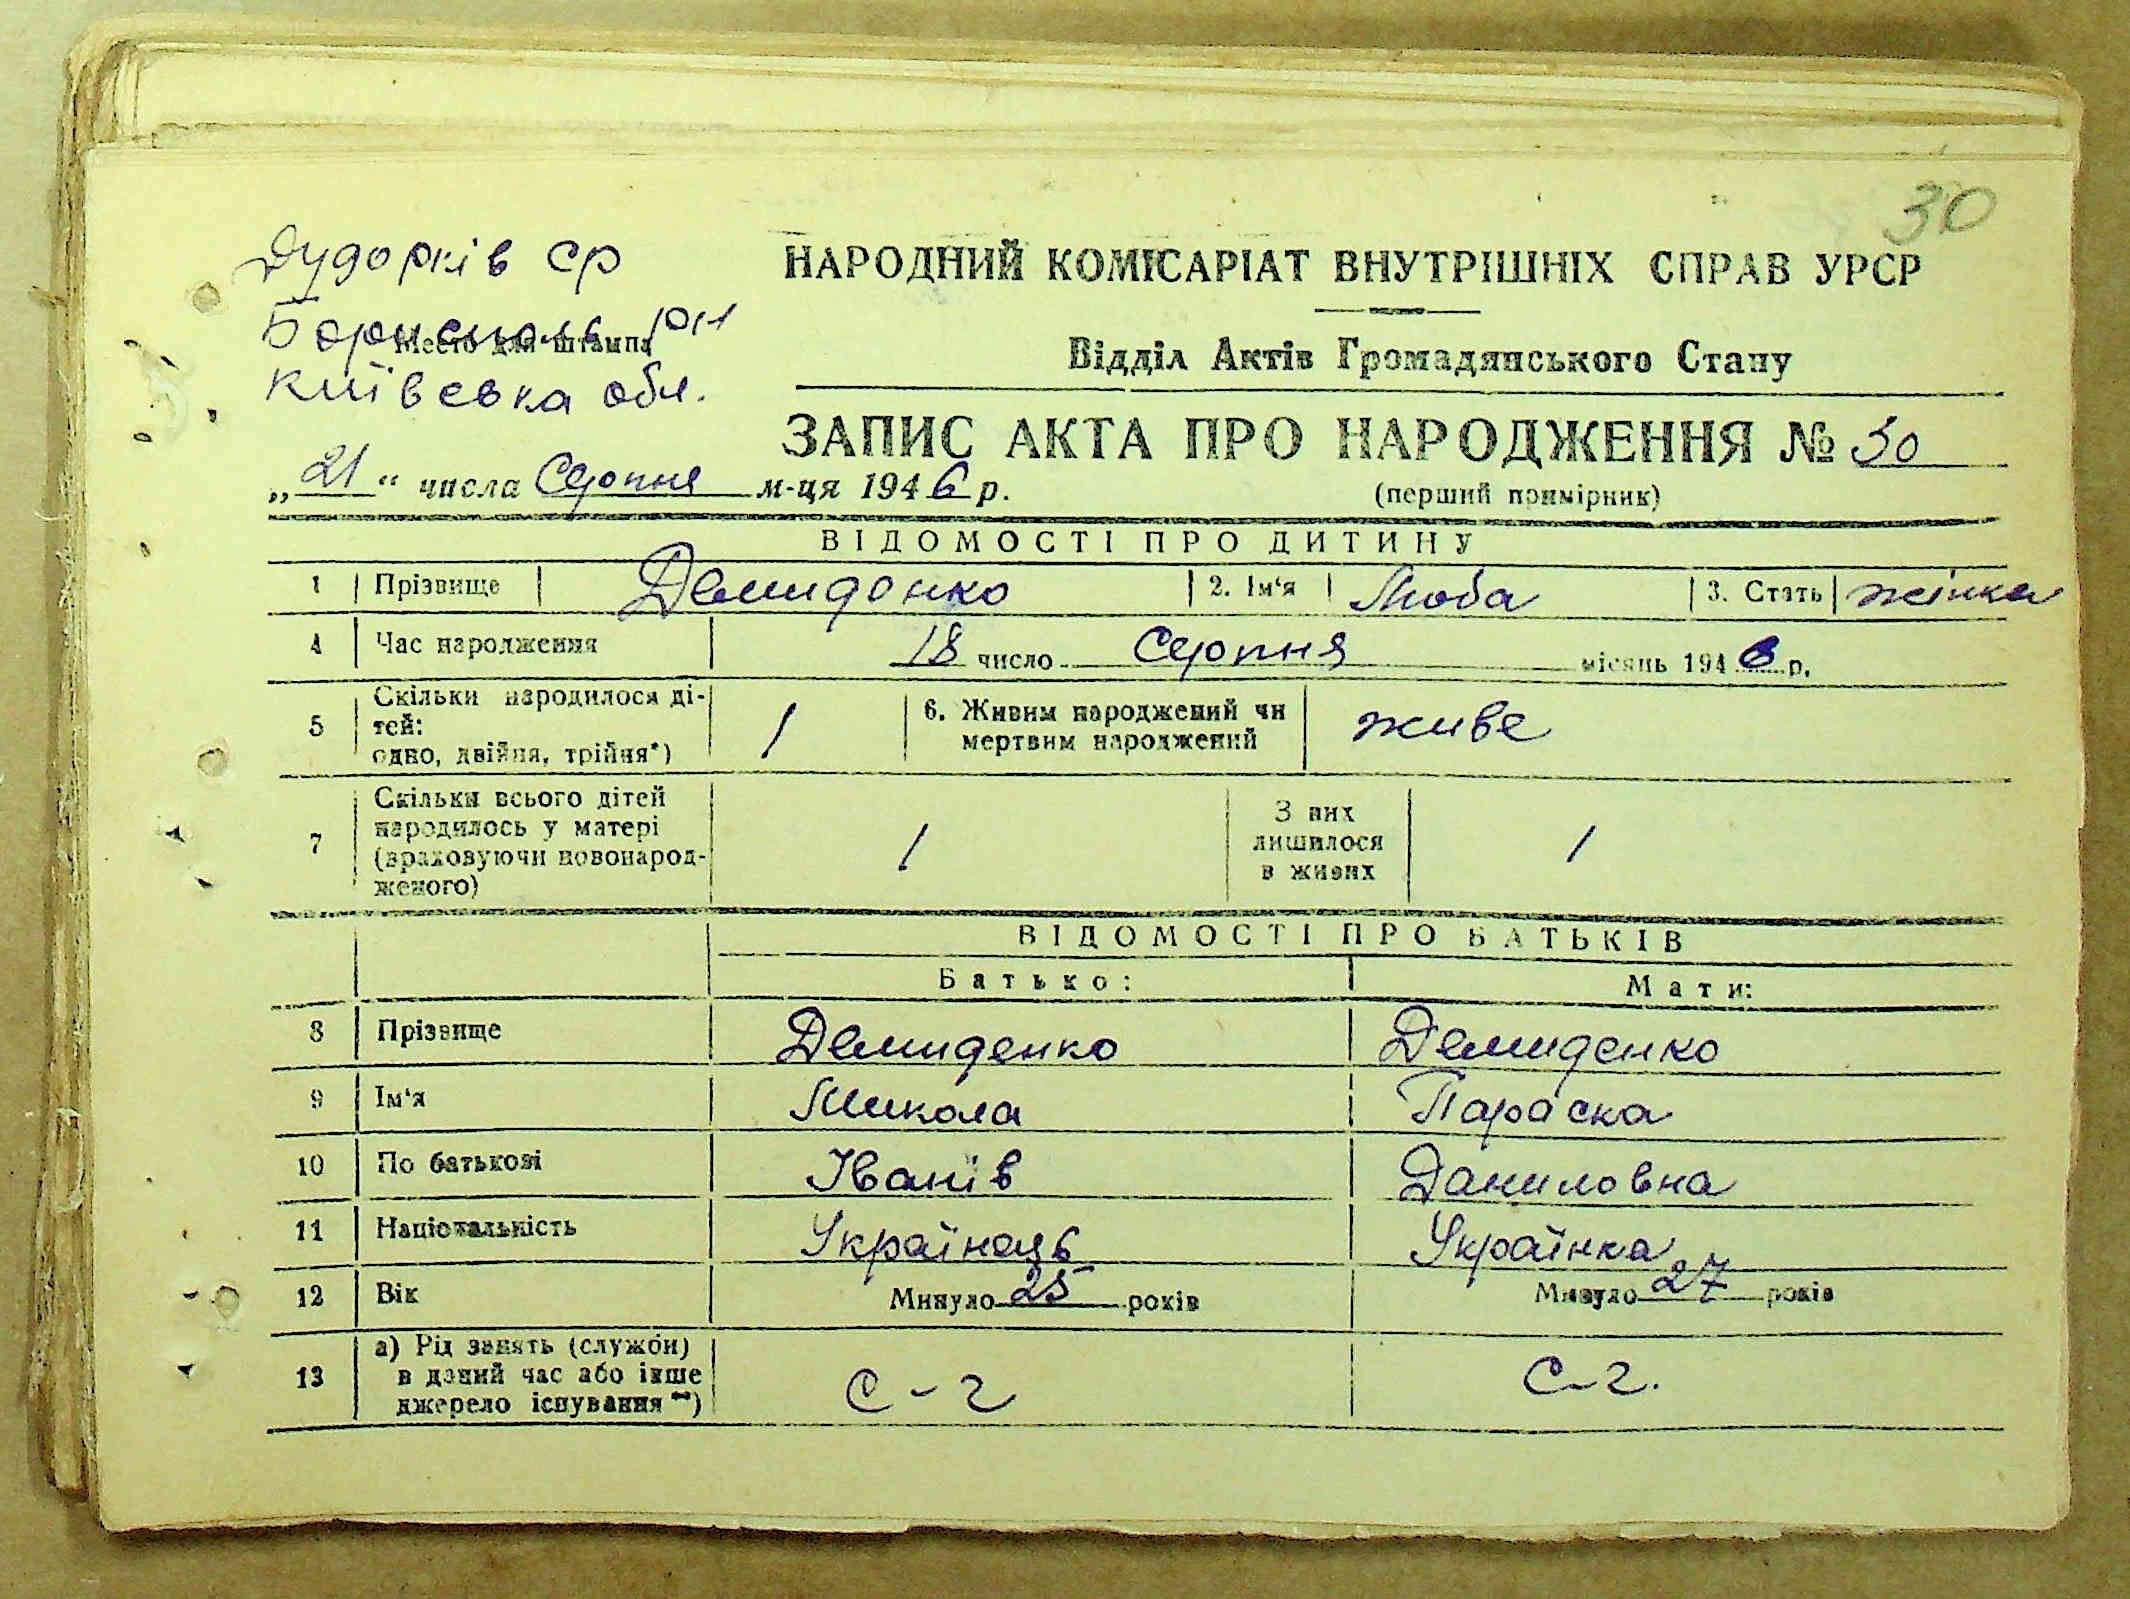 30
Дудорків ср
Бориспольс рн
Место для штампа
Київська обл.
НАРОДНИЙ КОМІСАРІАТ ВНУТРІШНІХ СПРАВ УРСР
Відділ Актів Громадянського Стану
ЗАПИС АКТА ПРО НАРОДЖЕННЯ № 30
„21“ числа Серпня м-ця 1946 р.
(перший примірник)
ВІДОМОСТІ ПРО ДИТИНУ
1 Прізвище Демиденко 2. Ім‘я Люба 3. Стать жінка
4 Час народження 18 число Серпня місяць 1946 р.
5 Скільки народилося ді-
тей:
одно, двійня, трійня*) 1 6. Живим народжений чи
мертвим народжений живе
7 Скільки всього дітей
народилось у матері
(враховуючи новонарод-
женого) 1 З них
лишилося
в живих 1
ВІДОМОСТІ ПРО БАТЬКІВ
Батько: Мати:
8 Прізвище Демиденко Демиденко
9 Ім‘я Микола Параска
10 По батькові Іванів Даниловна
11 Національність Українець Українка
12 Вік Минуло 25 років Минуло 27 років
13 а) Рід занять (служби)
в даний час або інше
джерело існування **) с-г с-г.